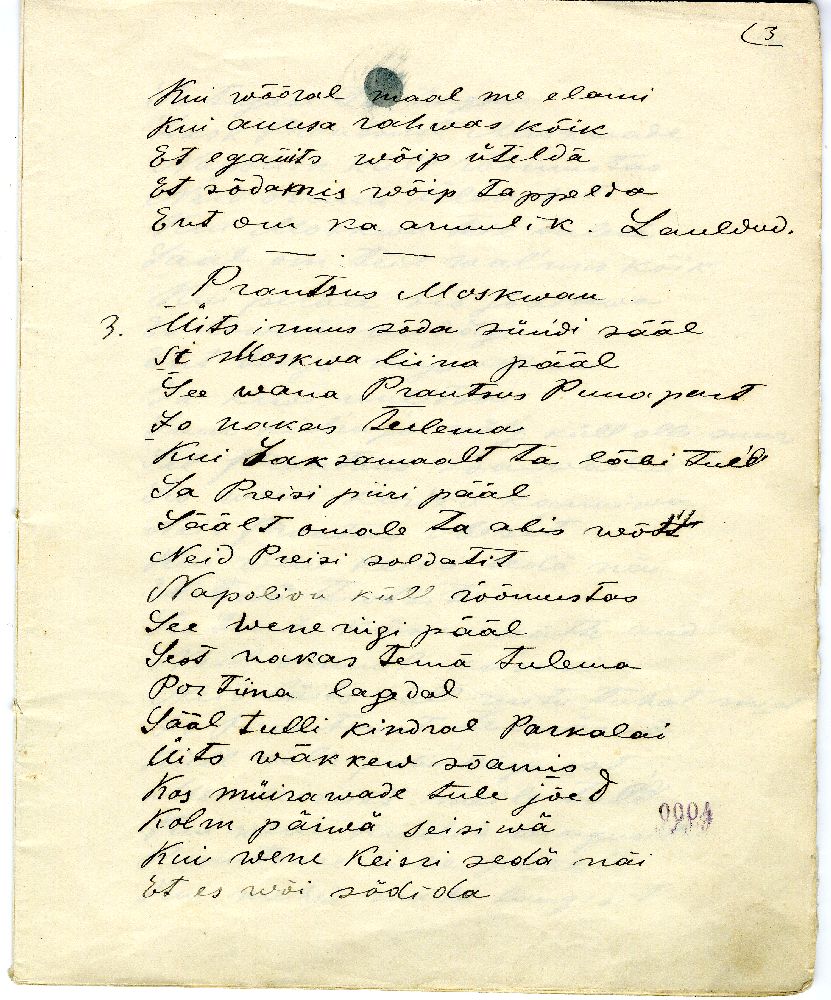 (3
Kui wõõral maal me elami
Kui ausa rahwas kõik
Et egaüts wõip ütelda
Et sõdamis wõip tappelda
Ent om ka armulik. Lauldud.
Prantsus Moskwan
3. Üits irmus sõda sündi sääl
Si Moskwa liina pääl
See wana Prantsus Punapart
Jo nakas tulema
Kui Saksamaalt ta läbi tull
Sa Preisi piiri pääl
Säält omale ta abis wõtt
Neid Preisi soldatit
Napolion küll rõõmustas
See wene riigi pääl
Sest nakas temä tulema
Portiina lagedal
Sääl tulli kindral Parkalai
Üits wäkkew sõamis
Kos müirawade tule jõed
Kolm päiwä seisiwä
Kui wene Keisri sedä näi
Et es wõi sõdida
0004